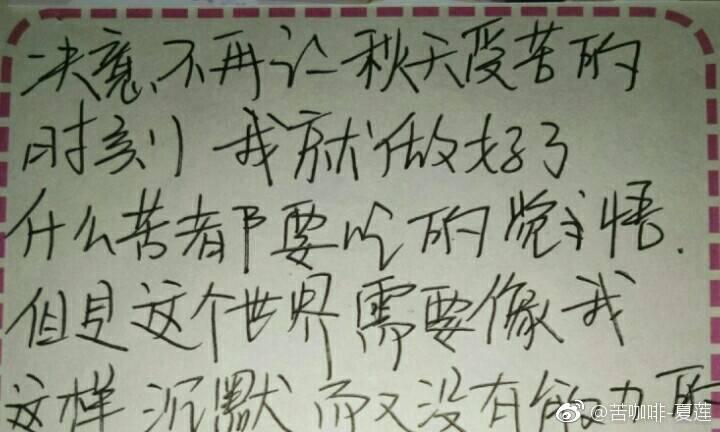 决意不再让秋天受苦的
时刻 我就做好了
什么苦都要吃的觉悟.
但是这个世界需要像我
这样沉默而又没有能力
@苦咖啡-夏莲